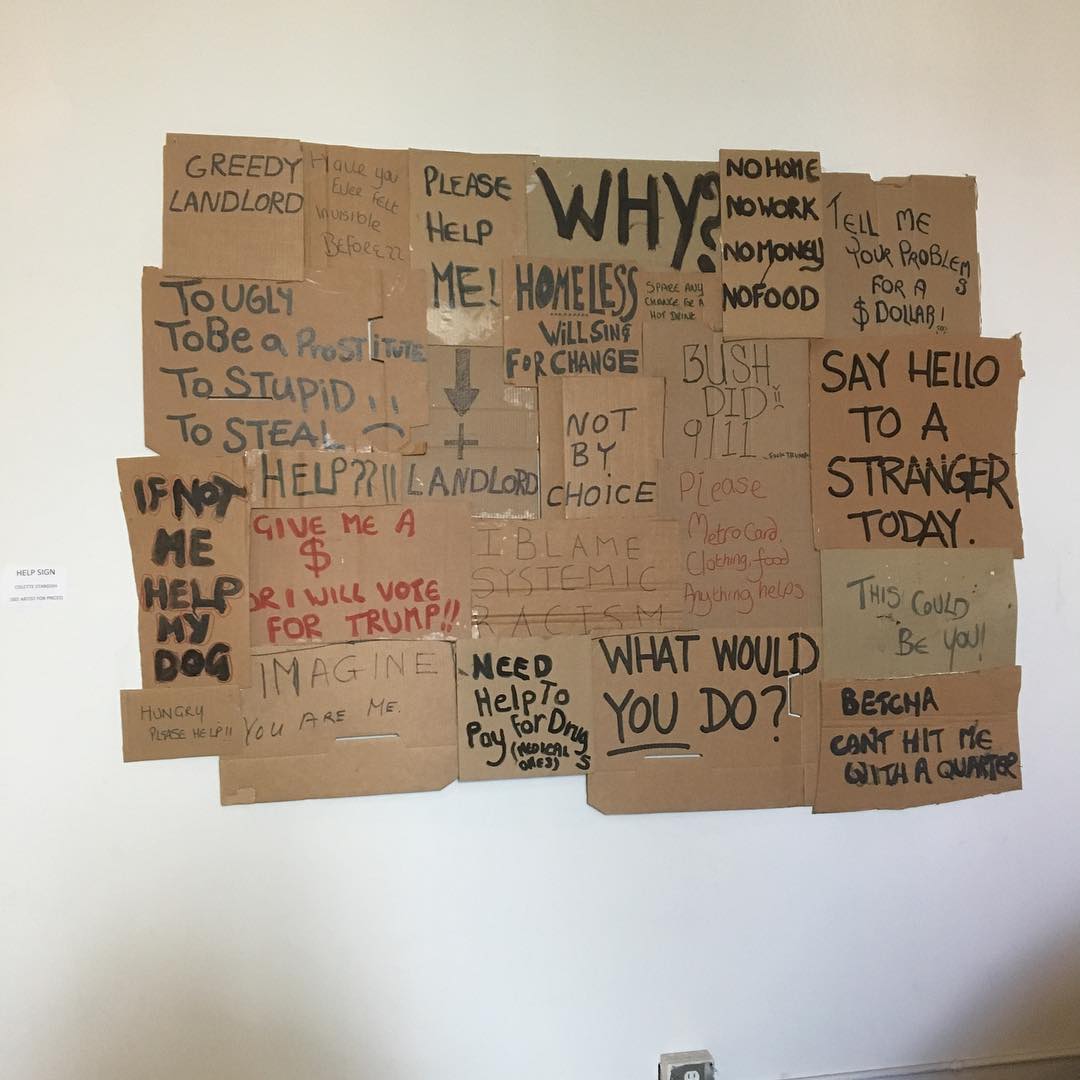 GREEDY
LANDLORD
Have you
Ever felt
invisible
BEFORE??
PLEASE
HELP
ME!
WHY?
NO HOME
NO WORK
NO MONEY
NO FOOD
TELL ME
YOUR PROBLEMS
FOR A
$ DOLLAR!
TO UGLY
TO Be a PROSTITUTE
TO STUPiD
TO STEAL
HOMELESS
WiLL SING
FOR CHANGE
SPARE ANY
CHANGE FOR A
HOT DRINK
BUSH
DID
9/11
SAY HELLO
TO A
STRANGER
TODAY.
NOT
BY
CHOICE
+
LANDLORD
HELP??!!
IF NOT
ME
HELP
MY
DOG
GIVE ME A
$
OR I WILL VOTE
FOR TRUMP!!
I BLAME
SYSTEMIC
RACISM
Please
Metro Card,
Clothing, food
Anything helps
THIS COULD
BE YOU!
HELP SIGN
HUNGRY
PLEASE HELP!!
IMAGINE
YOU ARE ME.
NEED
Help To
Pay For Drugs
(MEDICAL
ONES)
WHAT WOULD
YOU DO?
BETCHA
CANT HIT ME
WITH A QUARTER